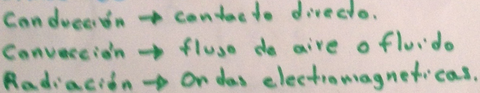 Conducción → contacto directo.
Convección → flujo de aire o fluido
Radiación → Ondas electromagneticas.